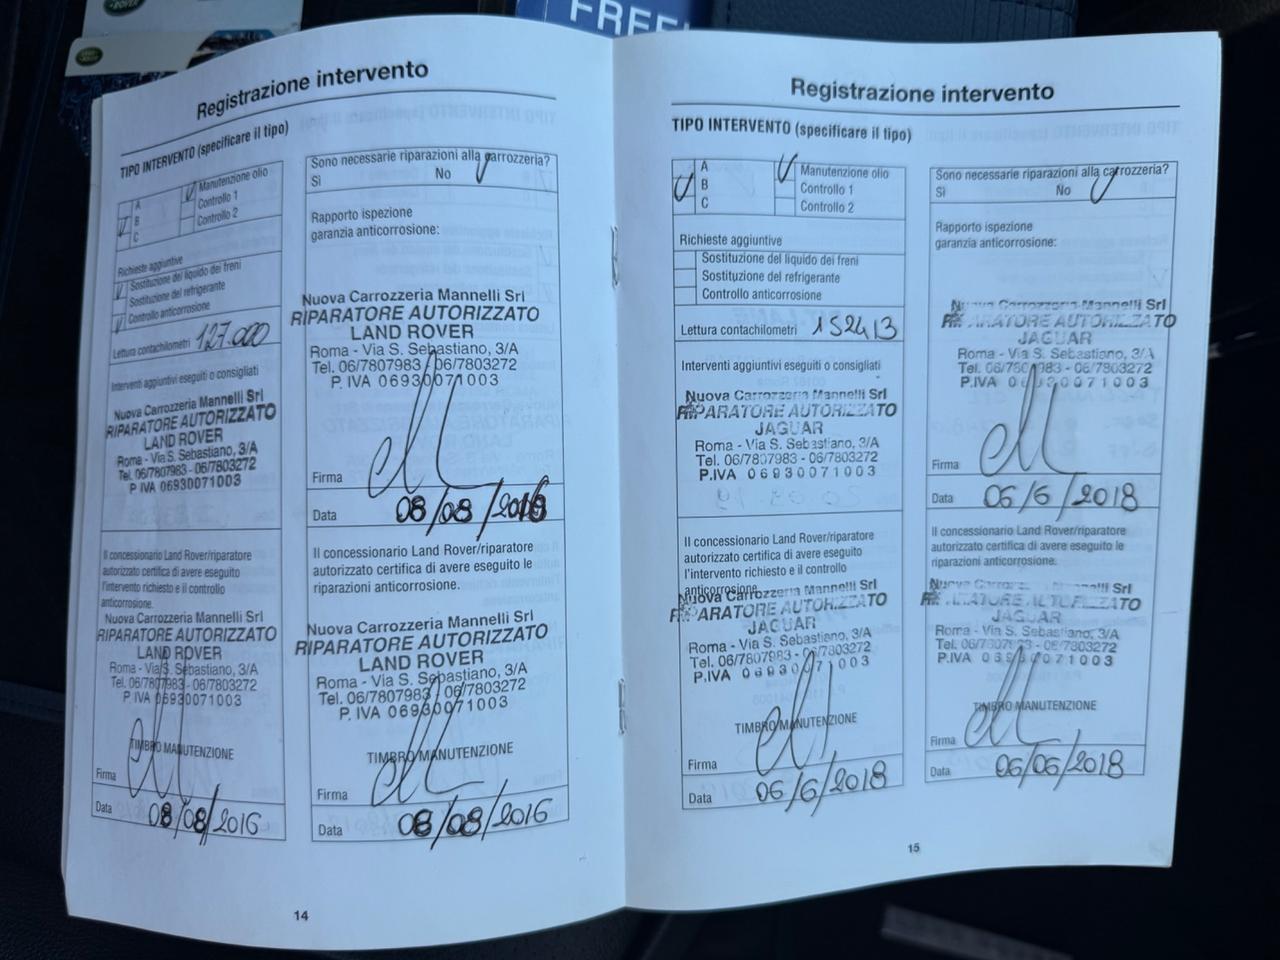 FREE
LAND ROVER
Registrazione intervento
TIPO INTERVENTO (specificare il tipo)
A
B
C
Manutenzione olio
Controllo 1
Controllo 2
Richieste aggiuntive
Sostituzione del liquido dei freni
Sostituzione del refrigerante
Controllo anticorrosione
Lettura contachilometri 127.000
Interventi aggiuntivi eseguiti o consigliati
Nuova Carrozzeria Mannelli Srl
RIPARATORE AUTORIZZATO
LAND ROVER
Roma - Via S. Sebastiano, 3/A
Tel. 06/7807983 - 06/7803272
P. IVA 06930071003
Il concessionario Land Rover/riparatore
autorizzato certifica di avere eseguito
l'intervento richiesto e il controllo
anticorrosione.
Nuova Carrozzeria Mannelli Srl
RIPARATORE AUTORIZZATO
LAND ROVER
Roma - Via S. Sebastiano, 3/A
Tel. 06/7807983 - 06/7803272
P. IVA 06930071003
TIMBRO MANUTENZIONE
Firma
Data 08/08/2016
Sono necessarie riparazioni alla carrozzeria?
Sì No
Rapporto ispezione
garanzia anticorrosione:
Nuova Carrozzeria Mannelli Srl
RIPARATORE AUTORIZZATO
LAND ROVER
Roma - Via S. Sebastiano, 3/A
Tel. 06/7807983 - 06/7803272
P. IVA 06930071003
Firma
Data 08/08/2016
Il concessionario Land Rover/riparatore
autorizzato certifica di avere eseguito le
riparazioni anticorrosione.
Nuova Carrozzeria Mannelli Srl
RIPARATORE AUTORIZZATO
LAND ROVER
Roma - Via S. Sebastiano, 3/A
Tel. 06/7807983 - 06/7803272
P. IVA 06930071003
TIMBRO MANUTENZIONE
Firma
Data 08/08/2016
14
Registrazione intervento
TIPO INTERVENTO (specificare il tipo)
A
B
C
Manutenzione olio
Controllo 1
Controllo 2
Richieste aggiuntive
Sostituzione del liquido dei freni
Sostituzione del refrigerante
Controllo anticorrosione
Lettura contachilometri 152413
Interventi aggiuntivi eseguiti o consigliati
Nuova Carrozzeria Mannelli Srl
RIPARATORE AUTORIZZATO
JAGUAR
Roma - Via S. Sebastiano, 3/A
Tel. 06/7807983 - 06/7803272
P.IVA 06930071003
Il concessionario Land Rover/riparatore
autorizzato certifica di avere eseguito
l'intervento richiesto e il controllo
anticorrosione.
Nuova Carrozzeria Mannelli Srl
RIPARATORE AUTORIZZATO
JAGUAR
Roma - Via S. Sebastiano, 3/A
Tel. 06/7807983 - 06/7803272
P.IVA 06930071003
TIMBRO MANUTENZIONE
Firma
Data 06/6/2018
Sono necessarie riparazioni alla carrozzeria?
Sì No
Rapporto ispezione
garanzia anticorrosione:
Nuova Carrozzeria Mannelli Srl
RIPARATORE AUTORIZZATO
JAGUAR
Roma - Via S. Sebastiano, 3/A
Tel. 06/7807983 - 06/7803272
P.IVA 06930071003
Firma
Data 06/6/2018
Il concessionario Land Rover/riparatore
autorizzato certifica di avere eseguito le
riparazioni anticorrosione.
Nuova Carrozzeria Mannelli Srl
RIPARATORE AUTORIZZATO
JAGUAR
Roma - Via S. Sebastiano, 3/A
Tel. 06/7807983 - 06/7803272
P.IVA 06930071003
TIMBRO MANUTENZIONE
Firma
Data 06/06/2018
15